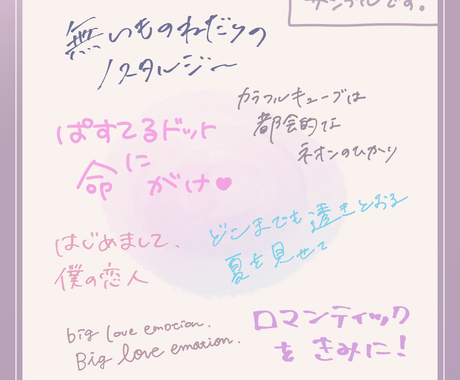 サンプルです。
無いものねだりの
ノスタルジー
カラフルキューブは
都会的な
ネオンのひかり
ぱすてるドット
に
命 がけ♥
どこまでも透きとおる
夏を見せて
はじめまして、
僕の恋人
big love emotion.
Big love emotion.
ロマンティック
を きみに!